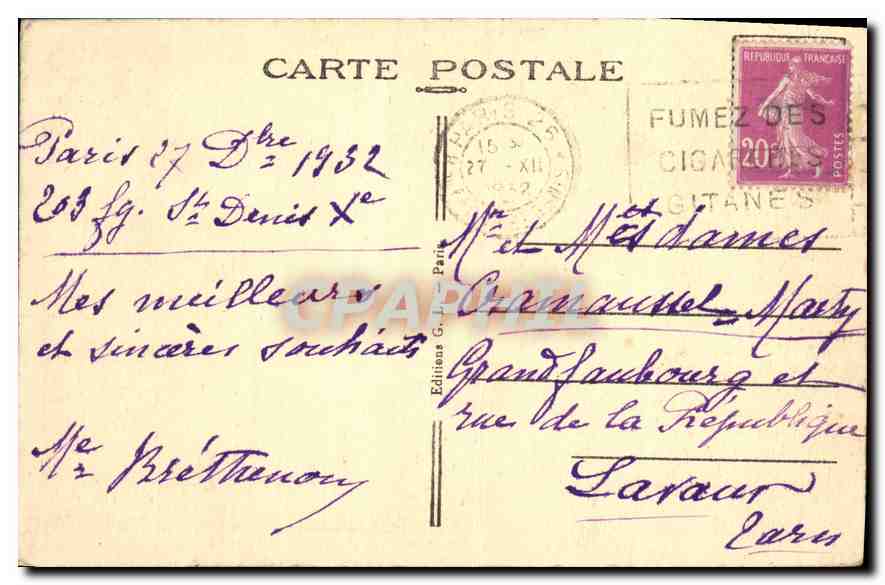 CARTE POSTALE
Paris 27 Dbre 1932
203 fg. St Denis Xe
Mes meilleurs
et sincères souhaits
Me Bréthenou
Editions G. - Paris
PARIS 26
15
27 - XII
1932
REPUBLIQUE FRANÇAISE
20c
POSTES
FUMEZ DES
CIGARETTES
GITANES
Mr et Mesdames
Cramaussel-Marty
Grand faubourg et
rue de la République
Lavaur
Tarn
CPAPHIL